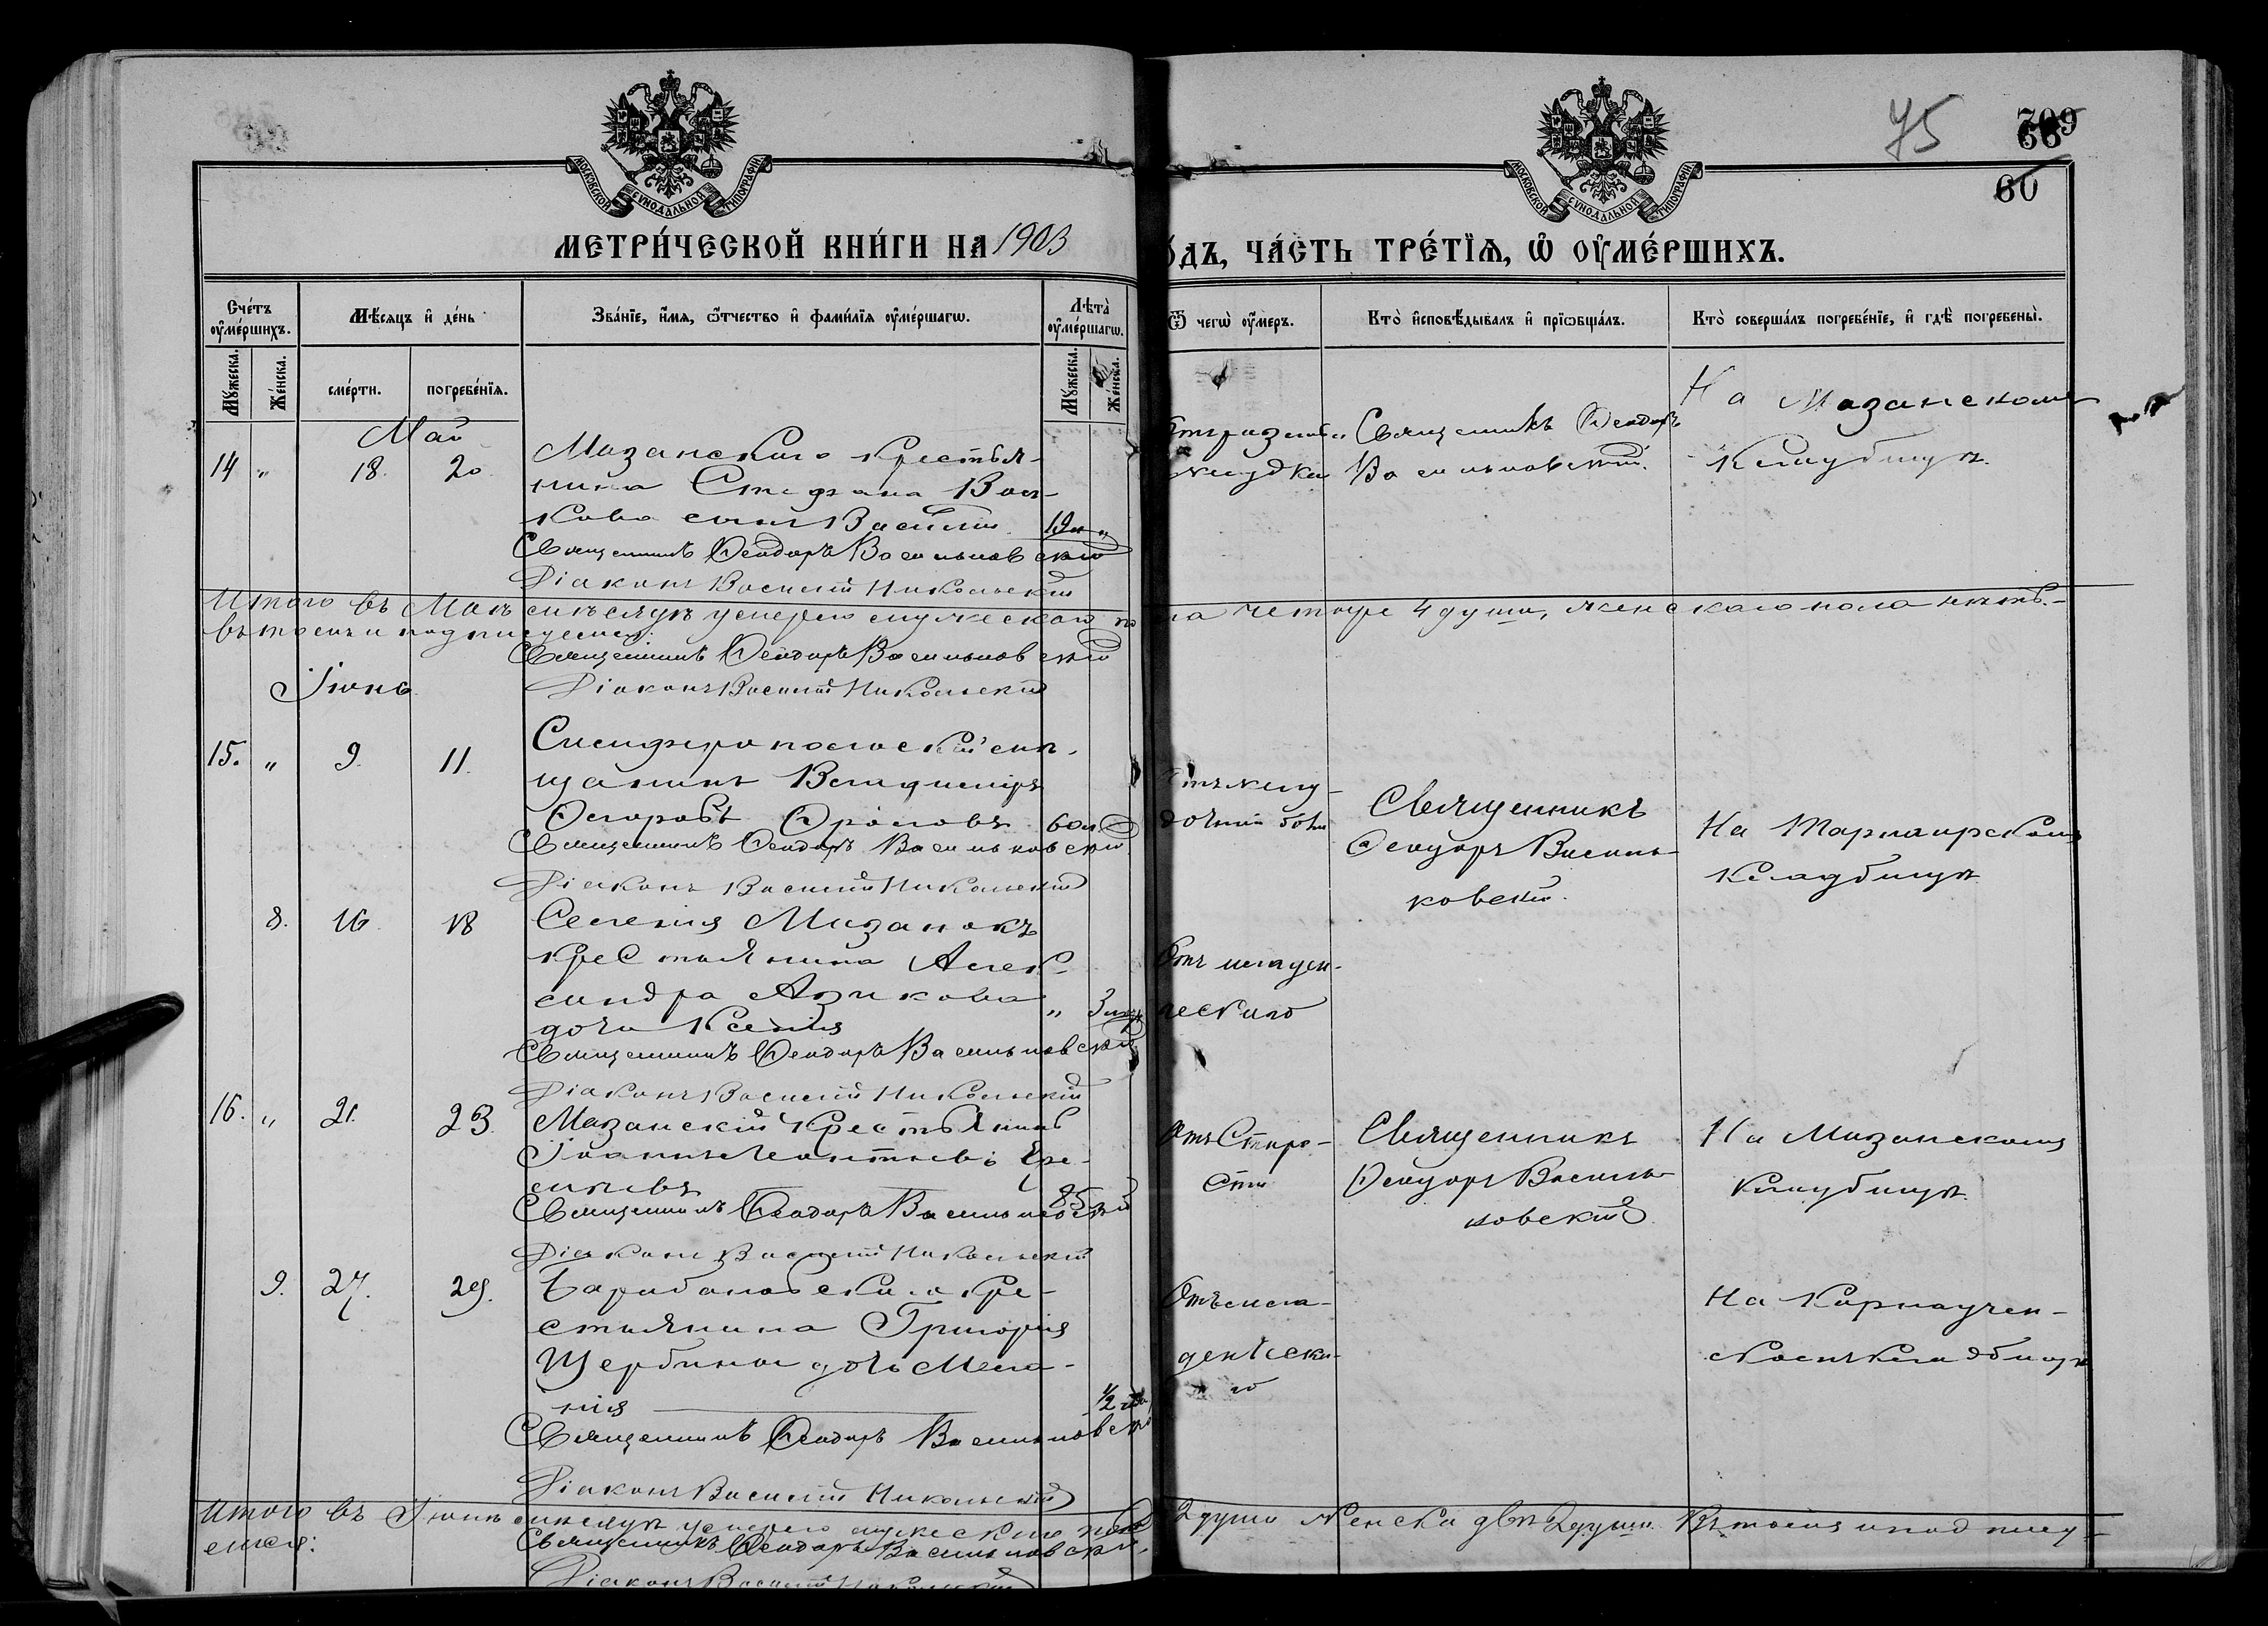 75
709
60
МОСКОВСКОЙ СѴНОДАЛЬНОЙ ТИПОГРАФІИ
МОСКОВСКОЙ СѴНОДАЛЬНОЙ ТИПОГРАФІИ
МЕТРИ́ЧЕСКОЙ КНИ́ГИ НА 1903
О́ДЪ, ЧА́СТЬ ТРЕ́ТІѦ, Ѡ ОУ҆МЕ́РШИХЪ.
Сче́тъ оу҆ме́ршихъ.
Мѣ́сяцъ и҆ де́нь
Зва́нїе, и҆́мя, ѻ҆́тчество и҆ фами́лїя оу҆ме́ршагѡ.
Лѣта̀ оу҆ме́ршагѡ.
Ѿ чегѡ̀ оу҆́меръ.
Кто̀ и҆сповѣ́дывалъ и҆ прїѡбща́лъ.
Кто̀ соверша́лъ погребе́нїе, и҆ гдѣ̀ погребены̀.
Мꙋ́жеска.
Же́нска.
сме́рти.
погребе́нїѧ.
Мꙋ́жеска.
Же́нска.
Май
14 " 18. 20
Мазанскаго крестья-
нина Стефана Вол-
кова сынъ Василій
Священникъ Ѳеодоръ Васильковскій
Діаконъ Василій Никольскій
желудка
Священникъ Ѳеодоръ
Васильковскій.
На Мазанскомъ
Кладбищѣ.
Итого въ Маѣ мѣсяцѣ умерло мужескаго по
ла четыре 4 души, женскаго пола нѣтъ.
въ томъ и подписуемся:
Священникъ Ѳеодоръ Васильковскій
Діаконъ Василій Никольскій
Іюнь
15. " 9. 11.
Симферопольскій мѣ-
щанинъ Владиміръ
Ѳедоровъ Фроловъ 60 л
Священникъ Ѳеодоръ Васильковскій
Діаконъ Василій Никольскій
Отъ желу-
дочной боли
Священникъ
Ѳеодоръ Василь-
ковскій.
На Тарнаирскомъ
Кладбищѣ
8. 16 18
Селенія Мазанокъ
крестьянина Алек-
сандра Азикова
дочь Ксенія
" 3 мѣс
Священникъ Ѳеодоръ Васильковскій
Діаконъ Василій Никольскій
Отъ младен-
ческаго
16. " 21. 23.
Мазанскій Крестьянинъ
Іоаннъ Леонтьевъ Ере-
мѣевъ 85
Священникъ Ѳеодоръ Васильковскій
Діаконъ Василій Никольскій
Отъ Старо-
сти
Священникъ
Ѳеодоръ Василь-
ковскій
На Мазанскомъ
Кладбищѣ
9. 27. 29.
Барабановскаго кре-
стьянина Григорія
Щербины дочь Мела-
нія 1/2
Священникъ Ѳеодоръ Васильковскій
Діаконъ Василій Никольскій
Отъ мла-
денческа-
го
На Карнаучен-
скомъ Кладбищѣ
Итого въ Іюнѣ мѣсяцѣ умерло мужескаго пола
2 души женска двѣ 2 души. Въ томъ и подпису-
емся:
Священникъ Ѳеодоръ Васильковскій
Діаконъ Василій Никольскій